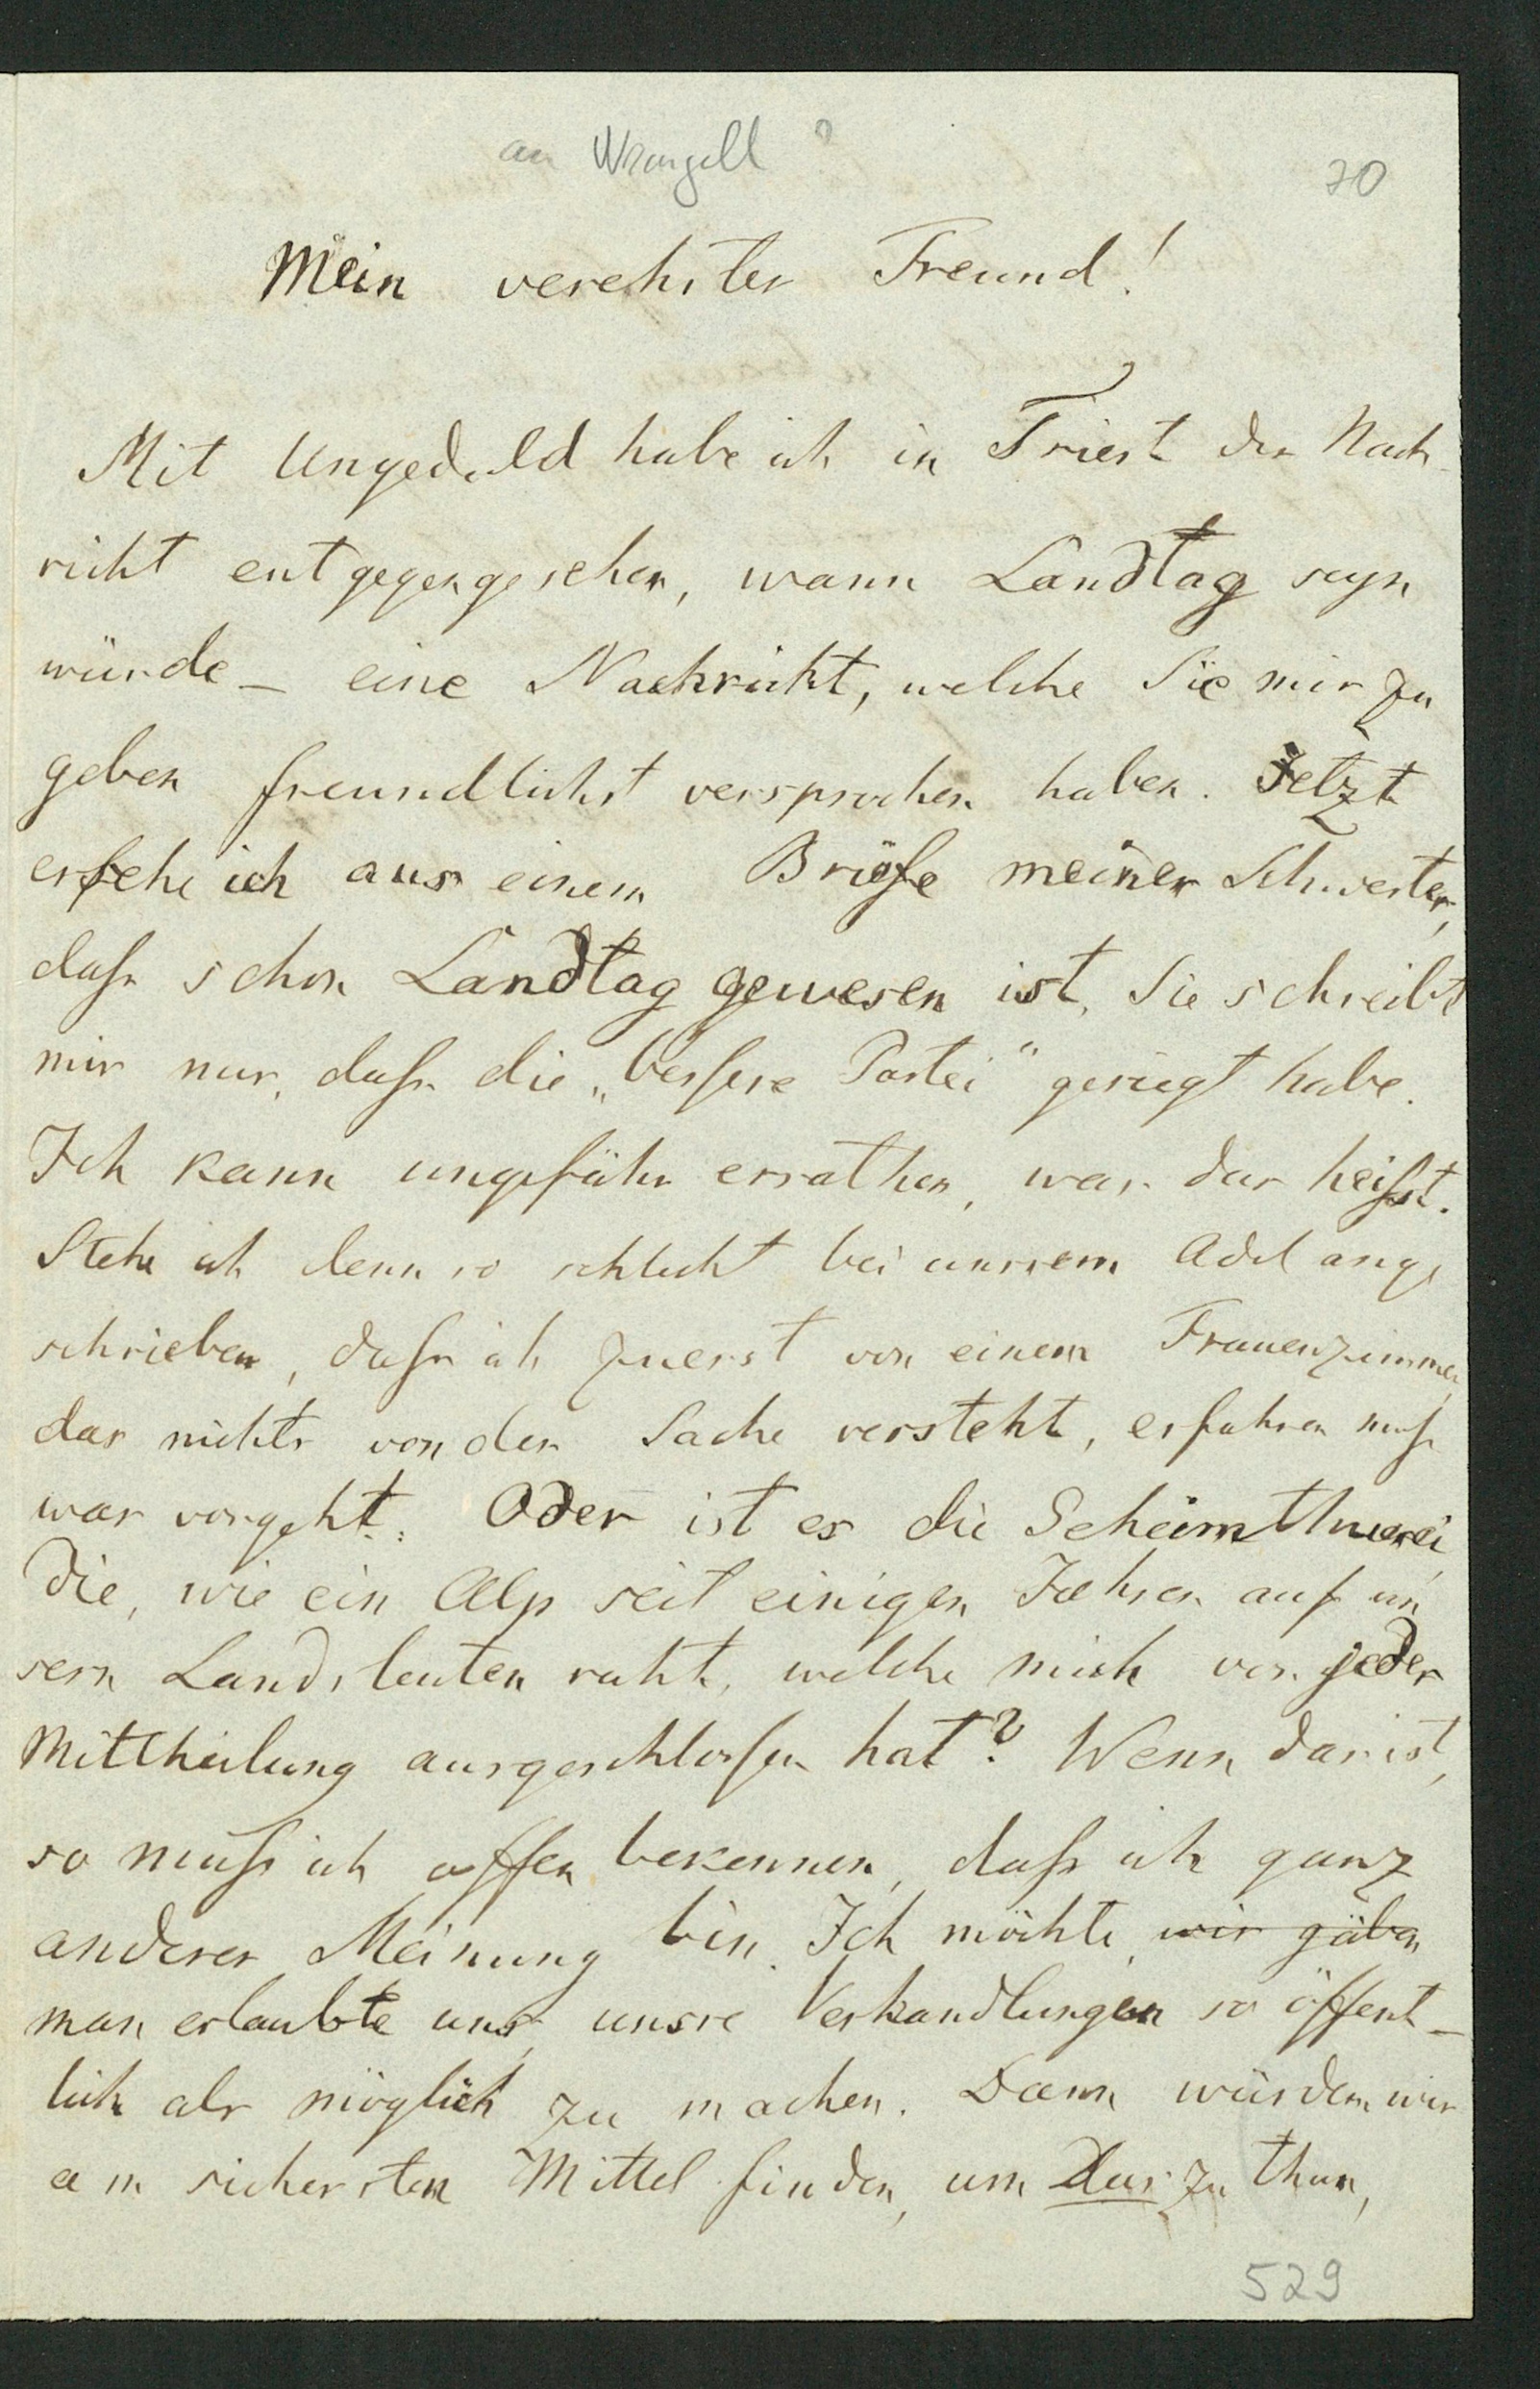 an Wrangell?
70
Mein verehrter Freund!
Mit Ungeduld habe ich in Triest der Nach-
richt entgegengesehen, wann Landtag seyn
würde – eine Nachricht, welche Sie mir zu
geben freundlichst versprochen haben. Jetzt
ersehe ich aus einem Briefe meiner Schwester,
daſs schon Landtag gewesen ist. Sie schreibt
mir nur, daſs die „beſsere Partei" gesiegt habe.
Ich kann ungefähr errathen, was das heiſst.
Stehe ich denn so schlecht bei unsrem Adel ange
schrieben, daſs ich zuerst von einem Frauenzimmer,
das nichts von der Sache versteht, erfahren muſs
was vorgeht. Oder ist es die Geheimthuerei
die, wie ein Alp seit einigen Jahren auf un
sern Landsleuten ruht, welche mich von jeder
Mittheilung ausgeschloſsen hat? Wenn das ist,
so muſs ich offen bekennen, daſs ich ganz
anderer Meinung bin. Ich möchte, wir gäben
man erlaubte uns, unsre Verhandlungen so öffent-
lich als möglich zu machen. Dann würden wir
am sichersten Mittel finden, um das zu thun,
529